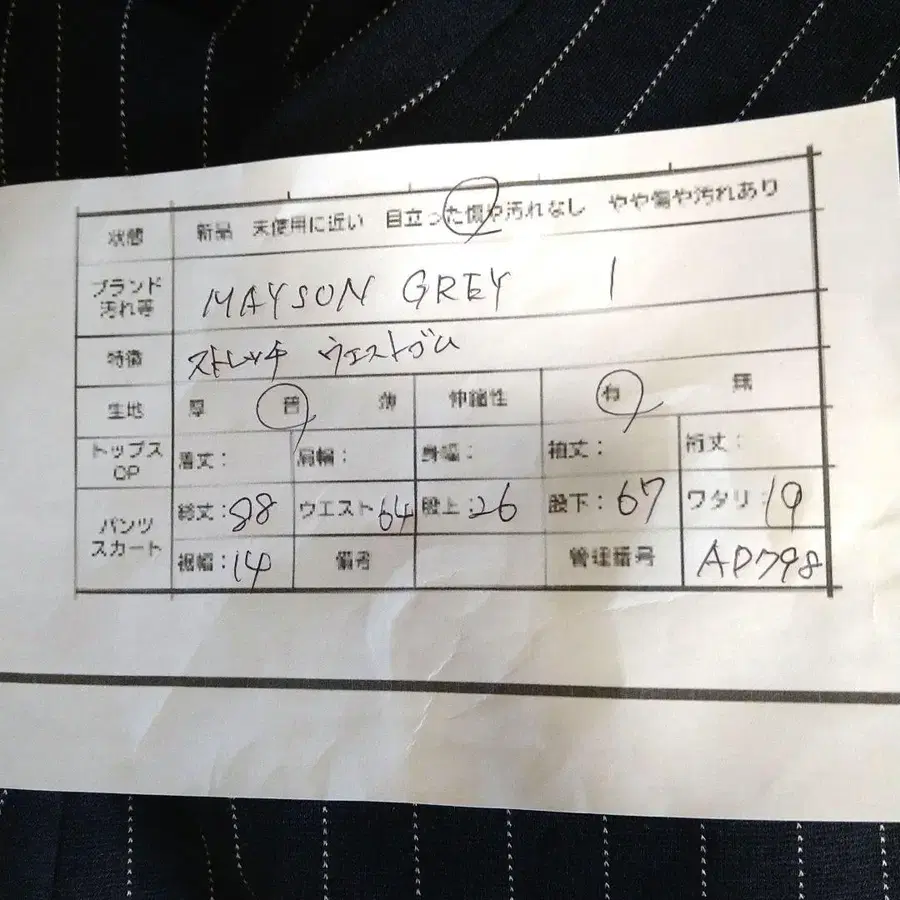 状態 新品 未使用に近い 目立った傷や汚れなし やや傷や汚れあり
ブランド
汚れ等 MAYSON GREY 1
特徴 ストレッチ ウエストゴム
生地 厚 普 薄 伸縮性 有 無
トップス
OP 着丈: 肩幅: 身幅: 袖丈: 裄丈:
パンツ
スカート 総丈:88 ウエスト64 股上:26 股下:67 ワタリ:19
裾幅:14 備考 管理番号 AD798